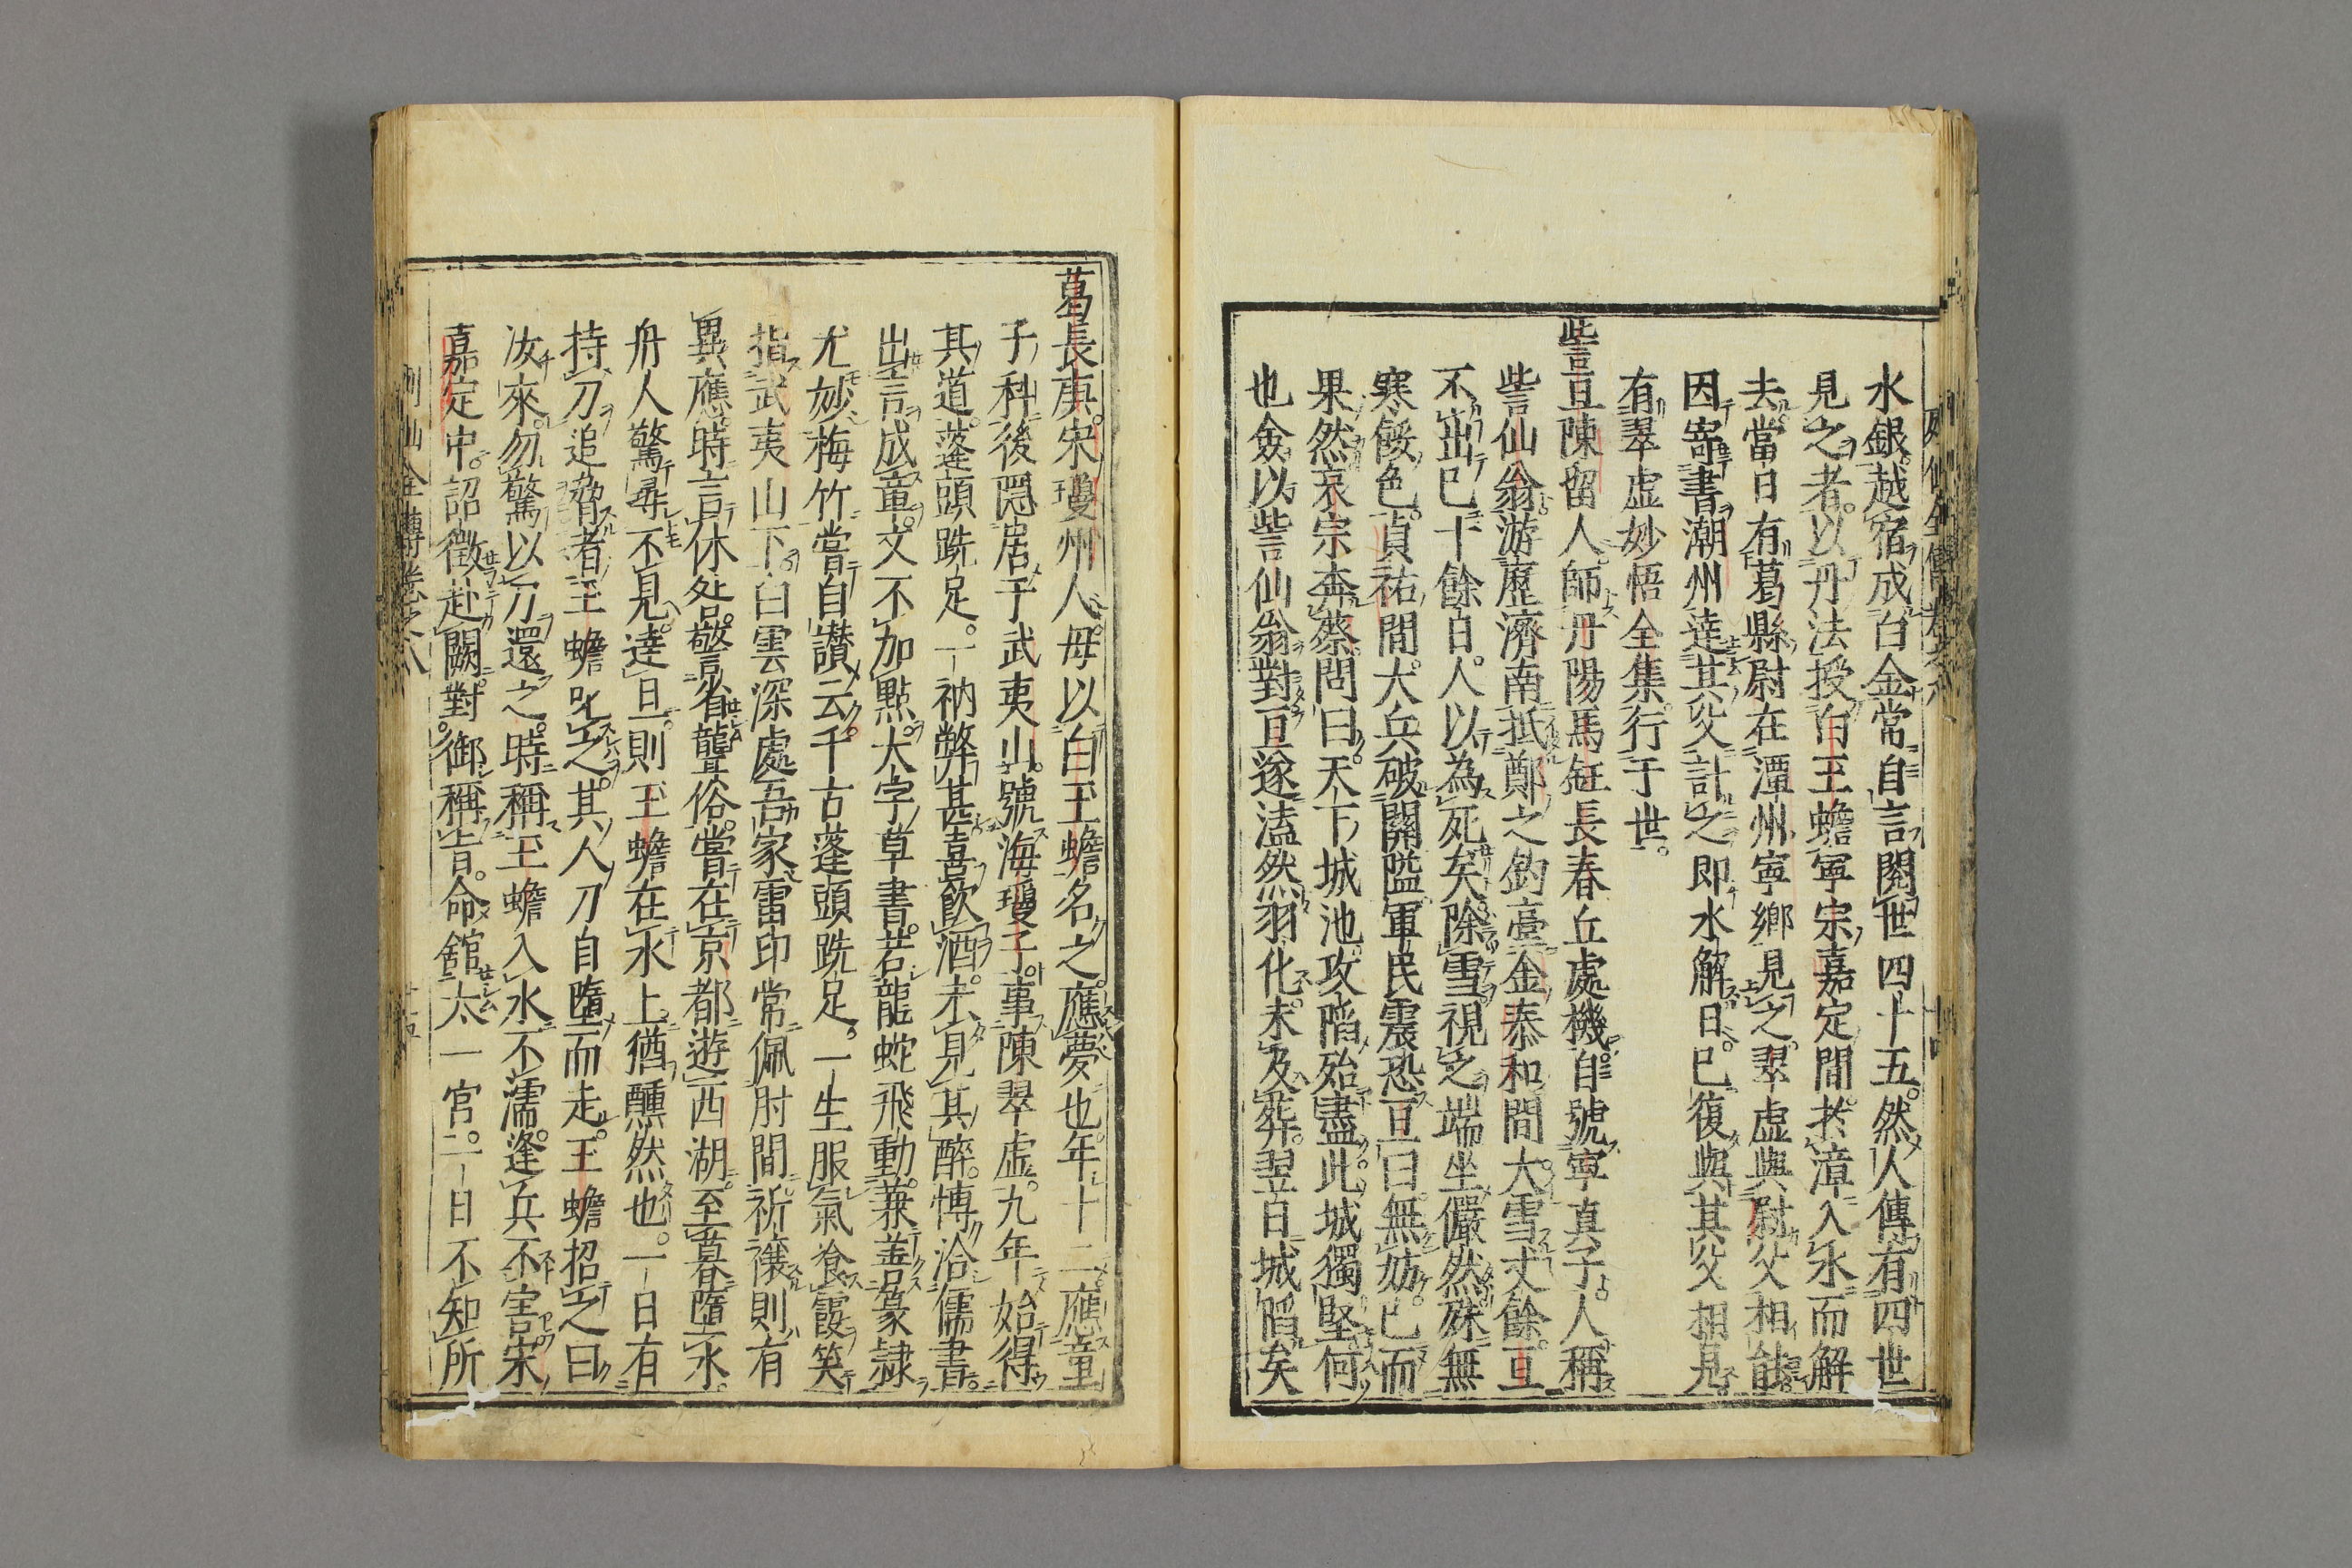 水銀越宿成白金常自言閱世四十五然人傳有四世
見之者以丹法授白玉蟾寧宗嘉定間於漳入水而解
去當日有葛縣尉在潭州寧鄉見之翠虛與尉父相能
因寄書潮州達其父計之即水解日已復與其父相見
有翠虛妙悟全集行于世
訾亘陳留人師丹陽馬鈺長春丘處機自號寧真子人稱
訾仙翁游歷濟南抵鄭之釣臺金泰和間大雪丈餘亘
不出已十餘日人以為死矣除雪視之端坐儼然殊無
寒餒色貞祐間大兵破關隘軍民震恐亘曰無妨已而
果然哀宗奔蔡問曰天下城池攻陷殆盡此城獨堅何
也僉以訾仙翁對亘遂溘然羽化未及葬翌日城陷矣
葛長庚宋瓊州人母以白玉蟾名之應夢也年十二應童
子科後隱居于武夷山號海瓊子事陳翠虛九年始得
其道蓬頭跣足一衲弊甚喜飲酒未見其醉博洽儒書
出言成章文不加點大字草書若龍蛇飛動兼善篆隸
尤妙梅竹嘗自讃云千古蓬頭跣足一生服氣飡霞笑
指武夷山下白雲深處吾家雷印常佩肘間祈禳則有
異應時言休咎警省聾俗嘗在京都遊西湖至暮墮水
舟人驚尋不見達旦則玉蟾在水上猶醺然也一日有
持刀追脅者玉蟾叱之其人刀自墮而走玉蟾招之曰
汝來勿驚以刀還之時稱玉蟾入水不濡逢兵不害宋
嘉定中詔徵赴闕對御稱旨命館太一宮一日不知所
列仙全傳卷之八